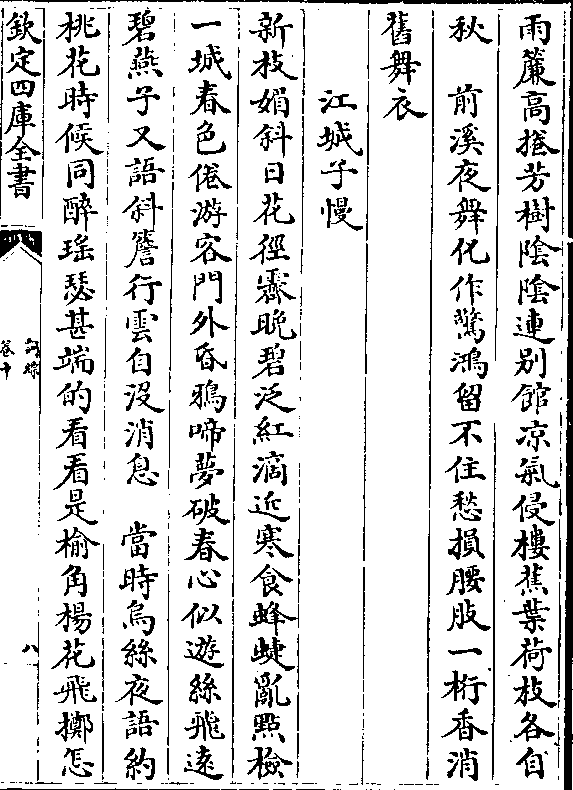 雨簾高捲芳樹陰陰連别館凉氣侵樓蕉葉荷枝各自
秋　前溪夜舞化作驚鴻留不住愁損腰肢一桁香消
舊舞衣
江城子慢
新枝媚斜日花徑霽晚碧泛紅滴近寒食蜂蝶亂點檢
一城春色倦游客門外昏鴉啼夢破春心似遊絲飛遠
碧燕子又語斜簷行雲自沒消息　當時烏絲夜語約
桃花時候同醉瑤瑟甚端的看看是榆角楊花飛擲怎
欽定四庫全書
詞綜
卷十
八